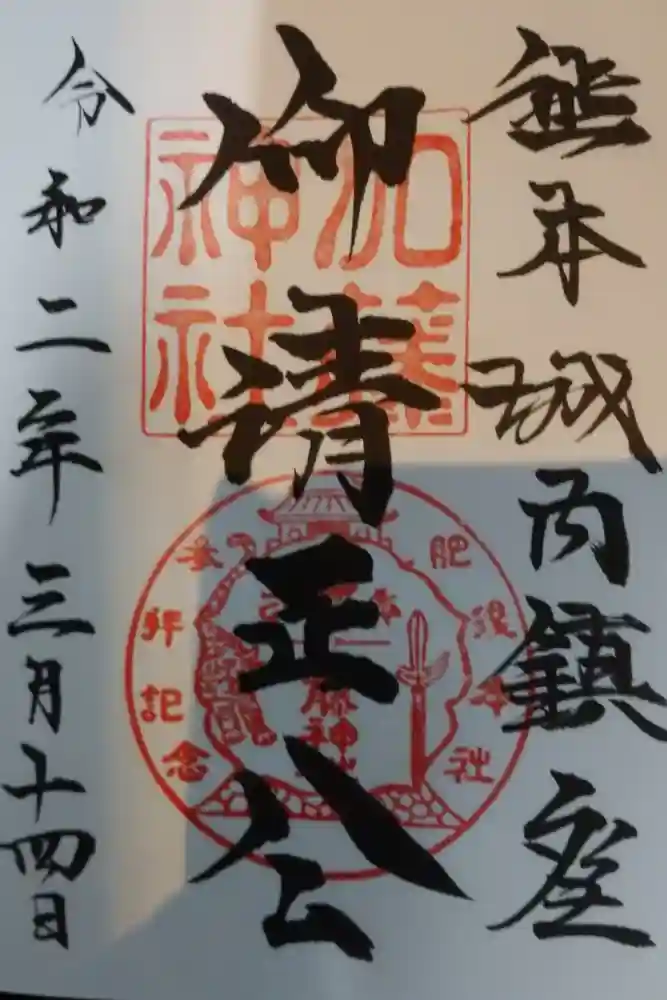 熊本城内鎮座
仰清正公
令和二年三月十四日
加藤
神社
肥後本社
参拝記念
藤神社